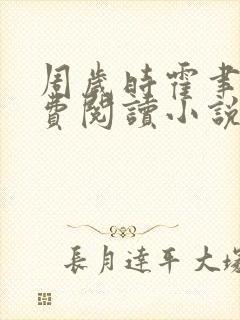 周歲時霍聿
費閱讀小說
長月達平大塚